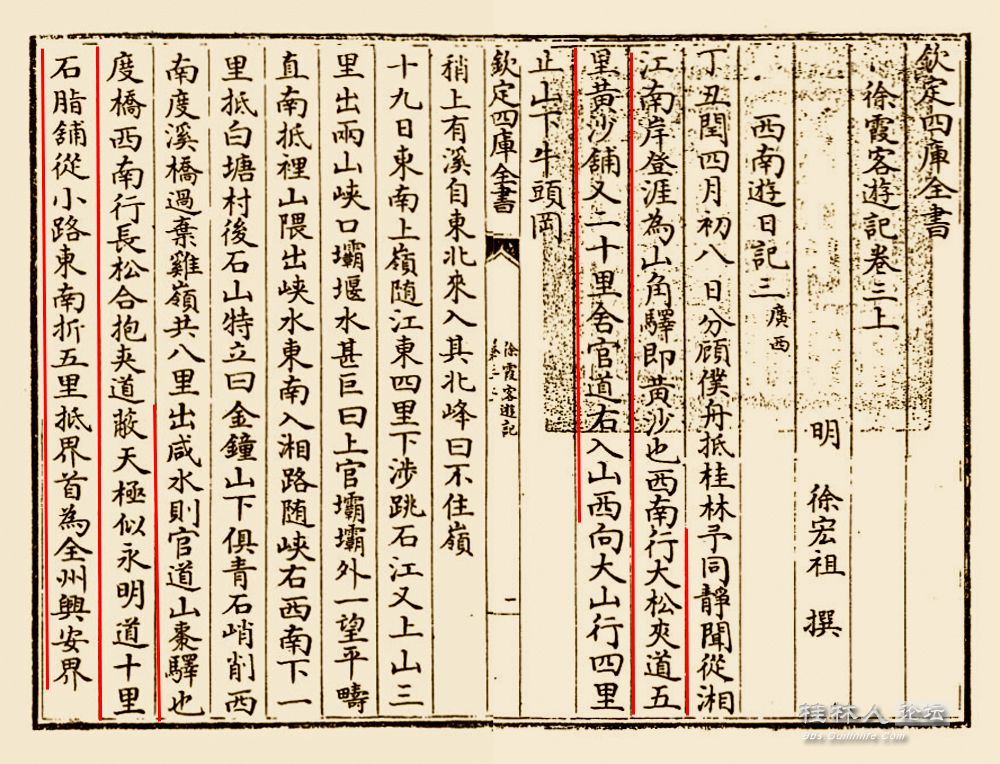 欽定四庫全書
徐霞客遊記卷三上
明 徐宏祖 撰
西南遊日記三廣西
丁丑閏四月初八日分顧僕舟抵桂林予同靜聞從湘
江南岸登涯為山角驛即黄沙也西南行大松夾道五
里黄沙舖又二十里舍官道右入山西向大山行四里
止山下牛頭岡
欽定四庫全書
徐霞客遊記
卷三上
一
稍上有溪自東北來入其北峰曰不住嶺
十九日東南上嶺随江東四里下涉跳石江又上山三
里出兩山峽口壩堰水甚巨曰上官壩壩外一望平疇
直南抵裡山隈出峽水東南入湘路随峽右西南下一
里抵白塘村後石山特立曰金鐘山下俱青石峭削西
南度溪橋過棄雞嶺共八里出咸水則官道山棗驛也
度橋西南行長松合抱夾道蔽天極似永明道十里
石脂舖從小路東南折五里抵界首為全州興安界
桂林人论坛
bbs.Guilinlife.com